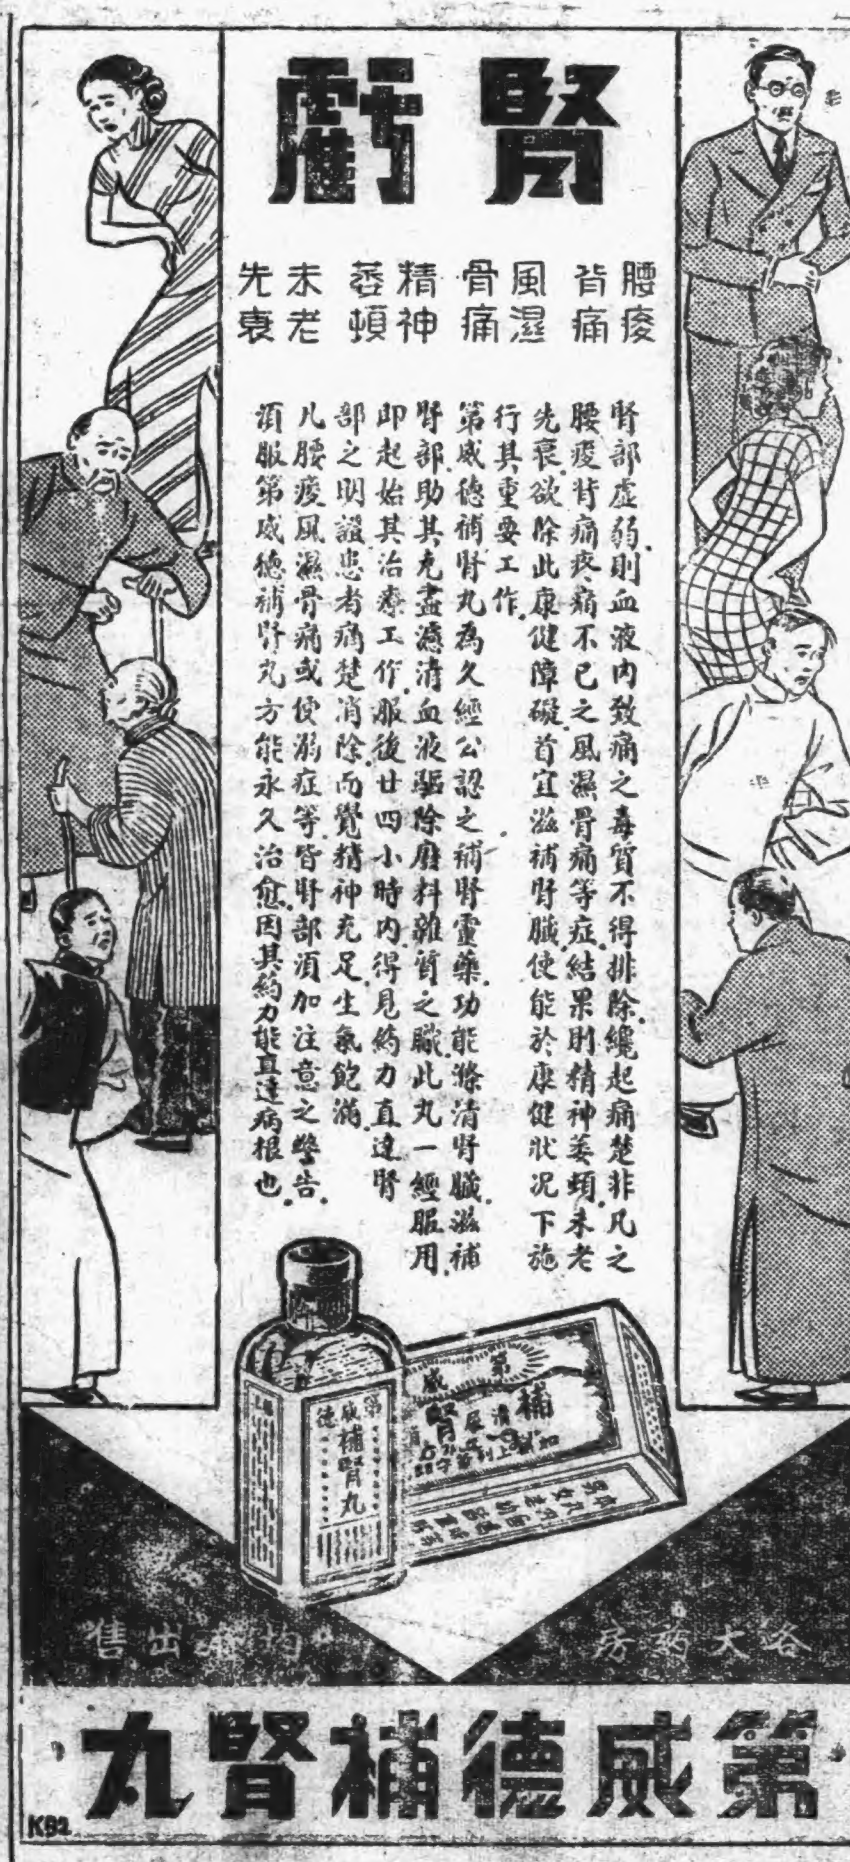 腎虧
腰痠
背痛
風濕
骨痛
精神
萎頓
未老
先衰
腎部虛弱則血液内致痛之毒質不得排除纔起痛楚非凡之
腰痠背痛疼痛不已之風濕骨痛等症結果則精神萎頓未老
先衰欲除此康健障礙首宜滋補腎臟使能於康健狀况下施
行其重要工作
第威德補腎丸為久經公認之補腎靈藥功能滌清腎臟滋補
腎部助其克盡濾清血液驅除廢料雜質之職此丸一經服用
即起始其治療工作服後廿四小時内得見葯力直達腎
部之明證患者痛楚消除而覺精神充足生氣飽滿
凡腰痠風濕骨痛或便溺症等皆腎部須加注意之警告
須服第威德補腎丸方能永久治愈因其葯力能直達病根也
第威德
補腎丸
第威
補腎
各大葯房
均有出售
第威德補腎丸
KB2